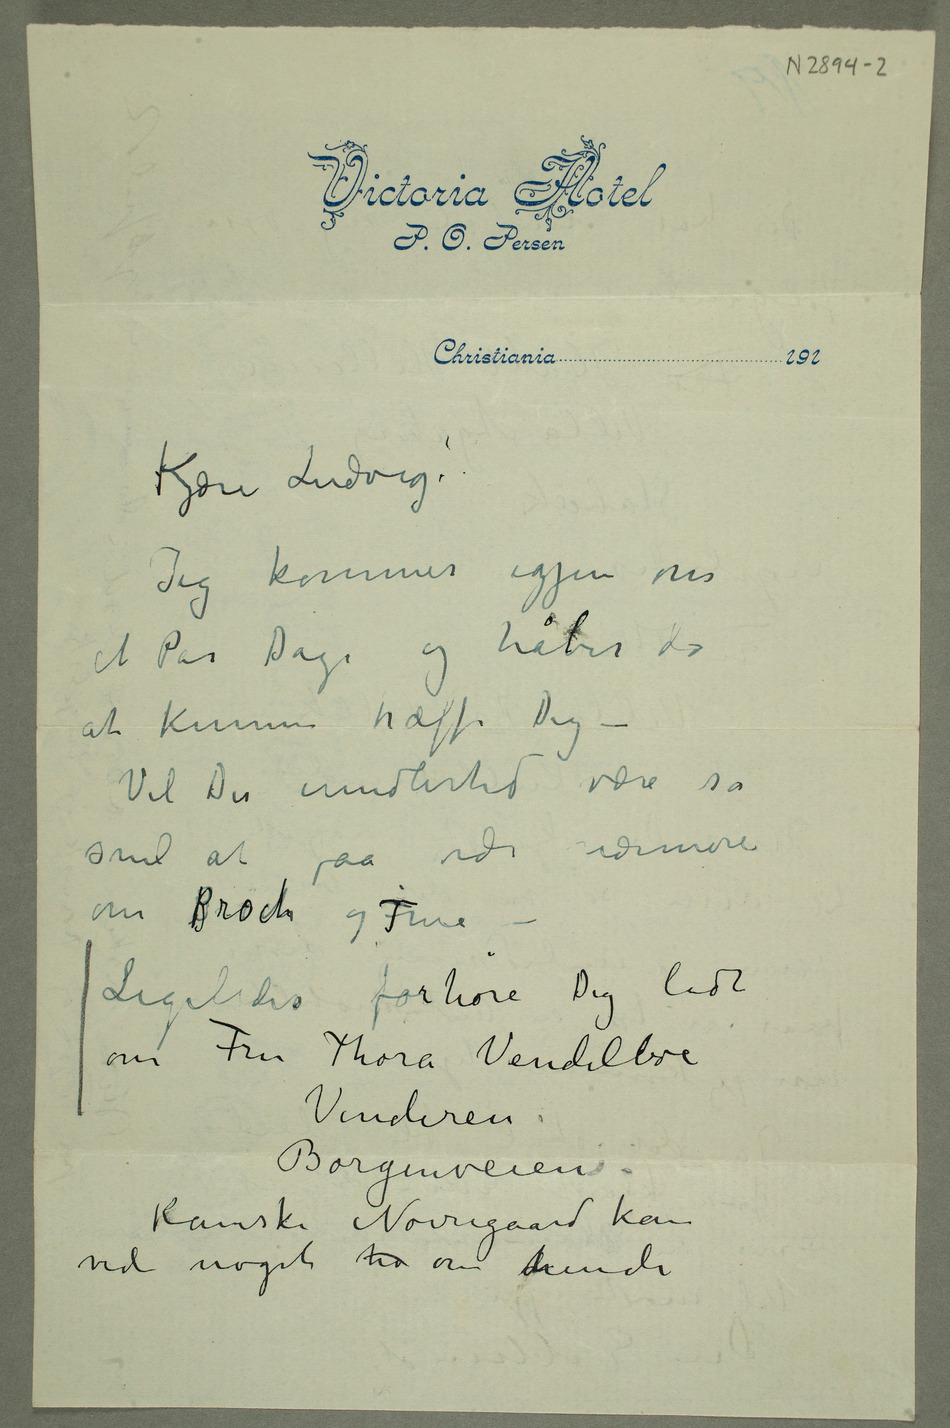 N 2894-2
Victoria Hotel
P. O. Persen
Christiania 191
Kjære Ludvig!
Jeg kommer igjen om
et Par Dage og håber da
at kunne træffe Dig –
Vil Du imidlertid være så
snil at faa vide nærmere
om Broch og Frue –
Ligeledes forhøre Dig lidt
om Fru Thora Vendelboe
Vinderen
Borgenveien.
Kanske Nørregaard kan
vide noget om hende